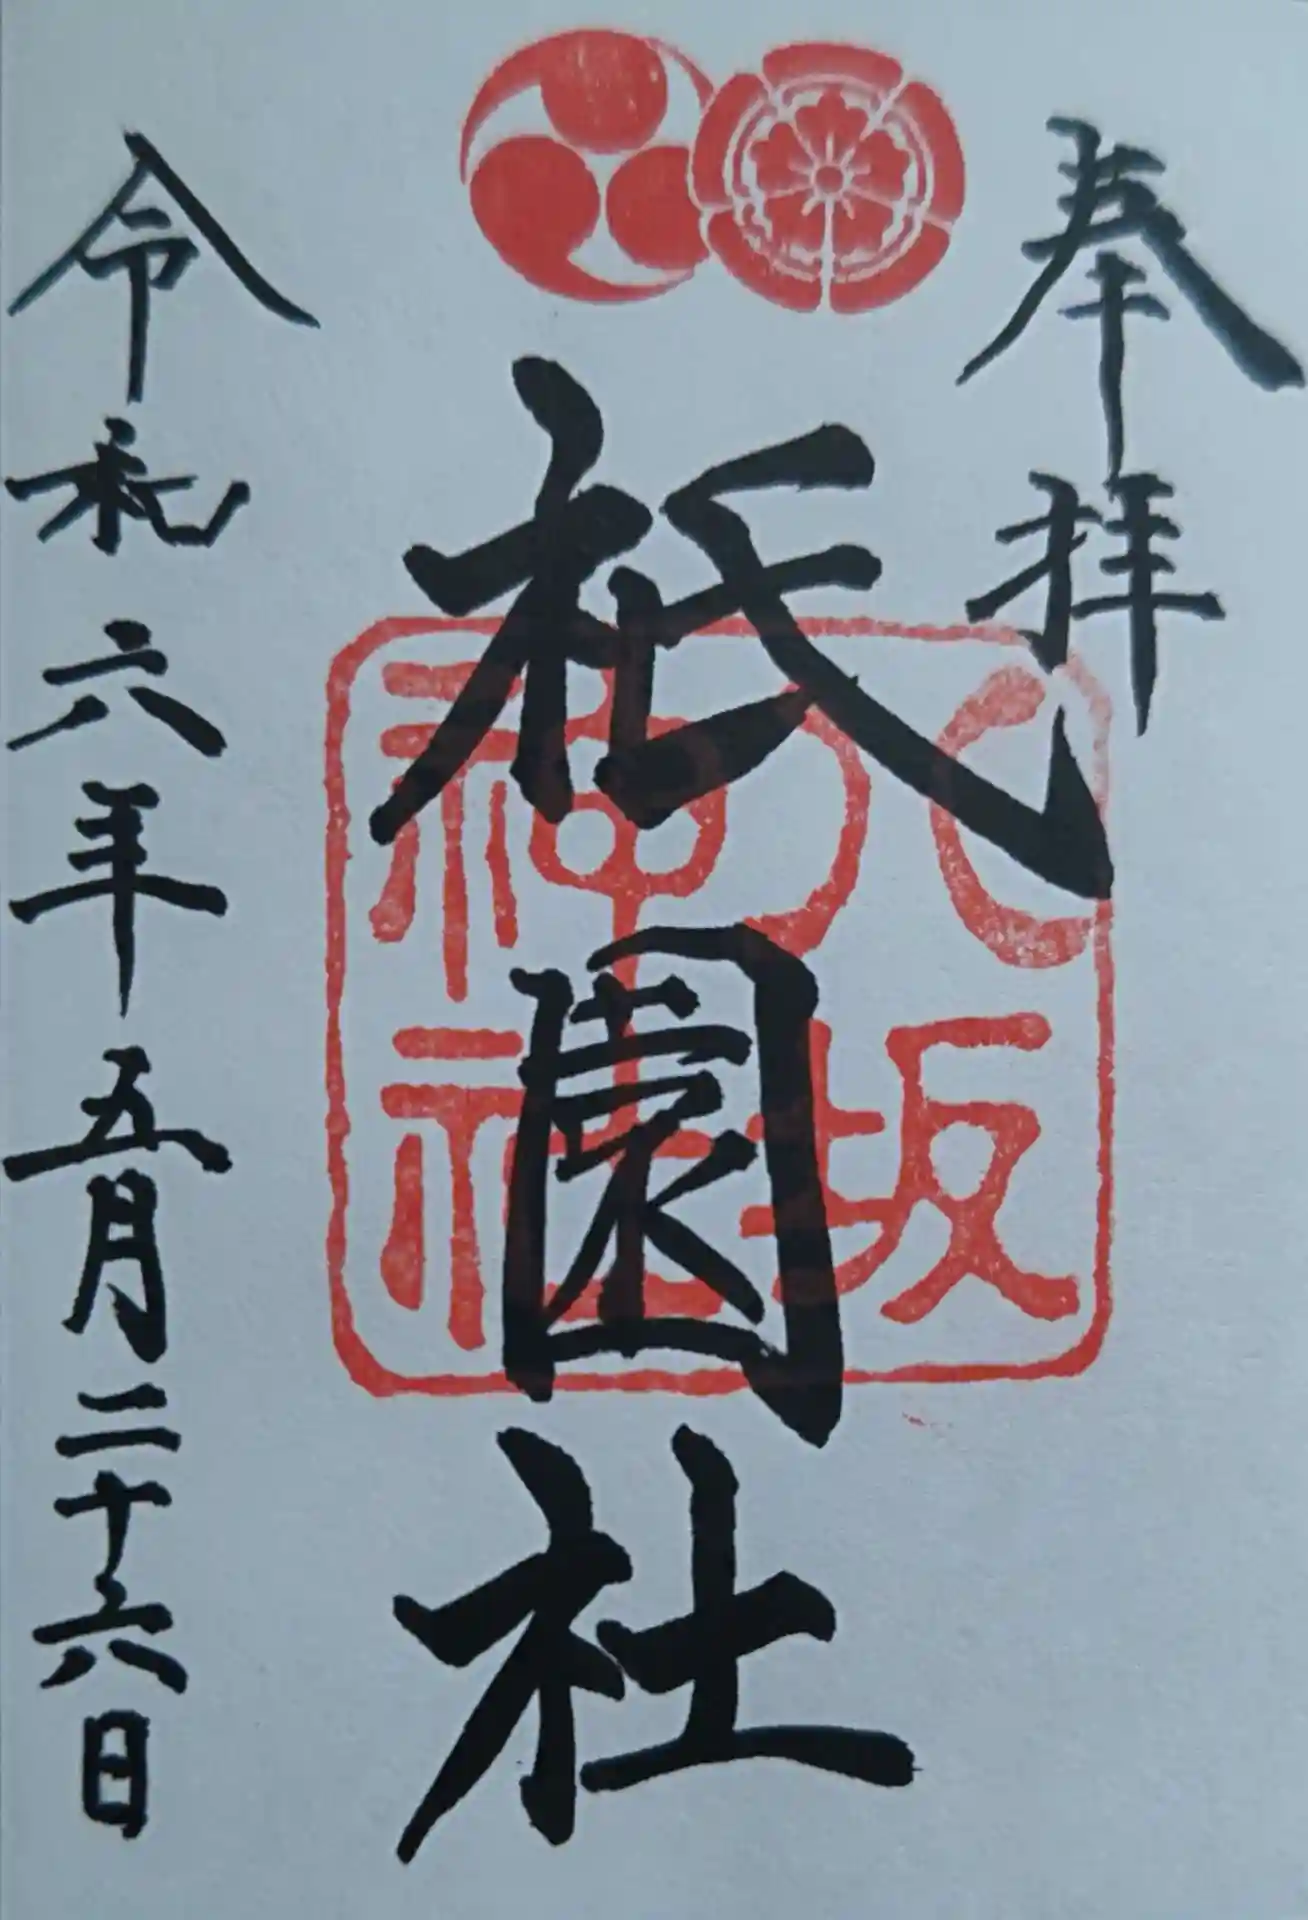 奉拝
祇園社
八坂
神社
令和六年五月二十六日